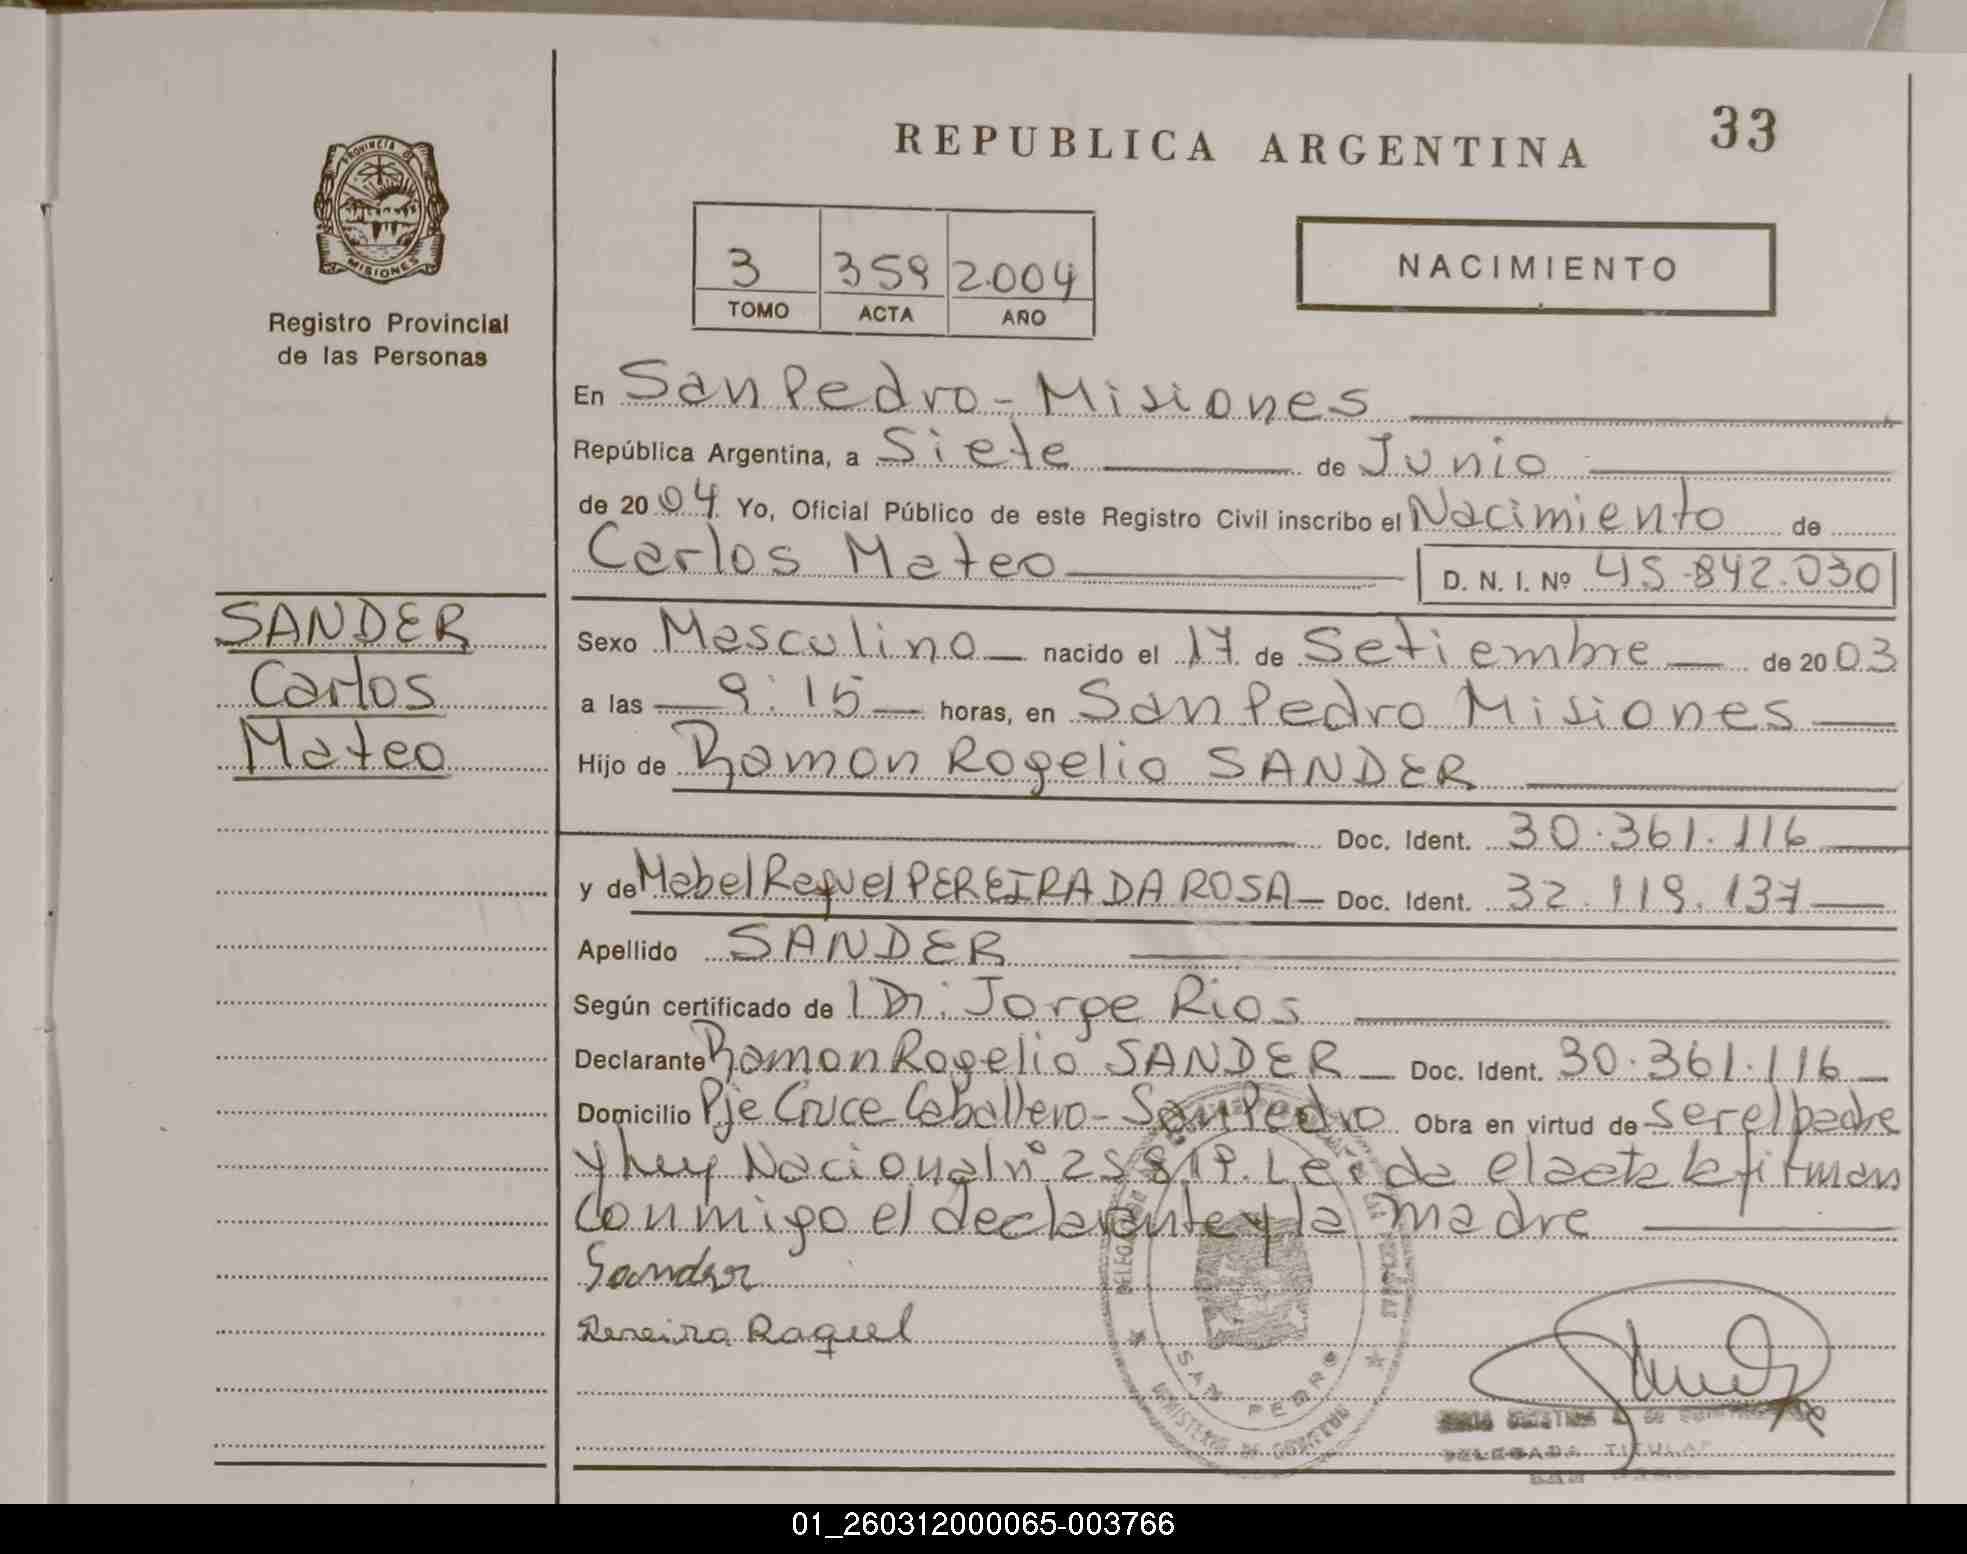 REPUBLICA ARGENTINA
33
PROVINCIA DE
MISIONES
Registro Provincial
de las Personas
3 359 2.004
TOMO ACTA AÑO
NACIMIENTO
En San Pedro - Misiones
República Argentina, a Siete de Junio
de 2004 Yo, Oficial Público de este Registro Civil inscribo el Nacimiento de
Carlos Mateo D. N. I. Nº 45.842.030
SANDER
Carlos
Mateo
Sexo Masculino nacido el 17 de Setiembre de 2003
a las 9:15 horas, en San Pedro Misiones
Hijo de Ramon Rogelio SANDER
Doc. Ident. 30.361.116
y de Mabel Raquel PEREIRA DA ROSA Doc. Ident. 32.119.137
Apellido SANDER
Según certificado de Dr. Jorge Rios
Declarante Ramon Rogelio SANDER Doc. Ident. 30.361.116
Domicilio Pje Cruce Caballero - San Pedro Obra en virtud de ser el padre
y ley Nacional nº 25.819. Leida el acta la firman
conmigo el declarante y la madre
Sander
Pereira Raquel
SAN PEDRO
MINISTERIO DE GOBIERNO
DELEGADA TITULAR
01_260312000065-003766